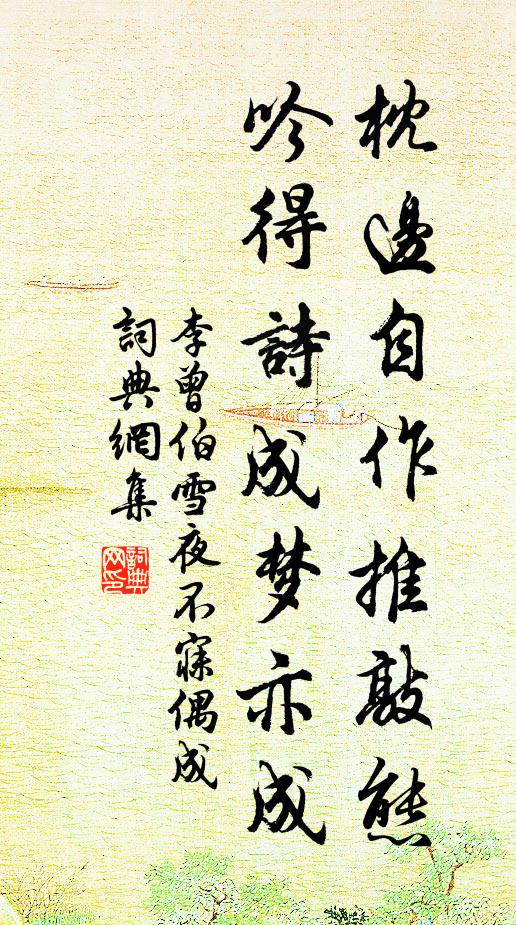 枕邊自作推敲態
吟得詩成梦亦成
李曾伯雪夜不寐偶成
詞典網集
詞典网印